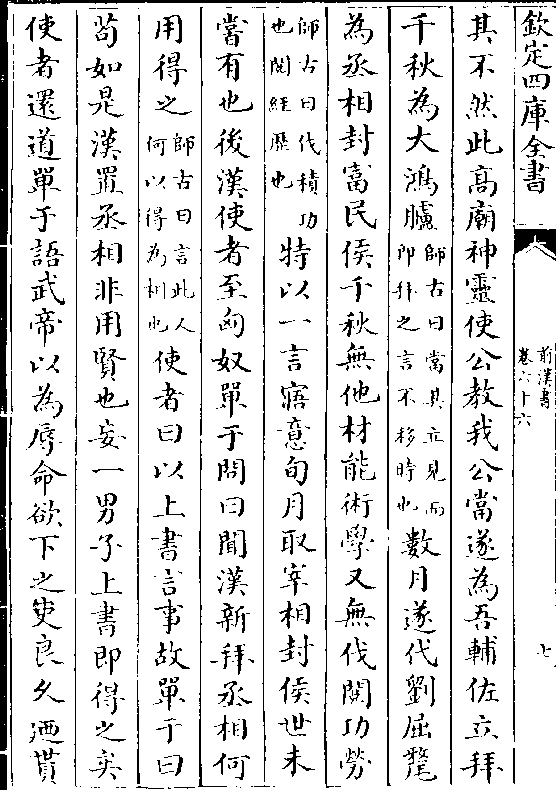 欽定四庫全書
前漢書
卷六十六
七
其不然此高廟神靈使公教我公當遂為吾輔佐立拜
千秋為大鴻臚師古曰當其立見而即拜之言不移時也數月遂代劉屈氂
為丞相封富民侯千秋無他材能術學又無伐閱功勞
師古曰伐積功也閱經歷也特以一言寤意旬月取宰相封侯世未
嘗有也後漢使者至匈奴單于問曰聞漢新拜丞相何
用得之師古曰言此人何以得為相也使者曰以上書言事故單于曰
苟如是漢置丞相非用賢也妄一男子上書即得之矣
使者還道單于語武帝以為辱命欲下之吏良久迺貰